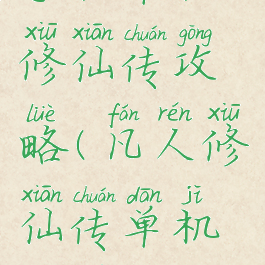 xiū xiān chuán gōng
修仙传攻
lüè fán rén xiū
略(凡人修
xiān chuán dān jī
仙传单机